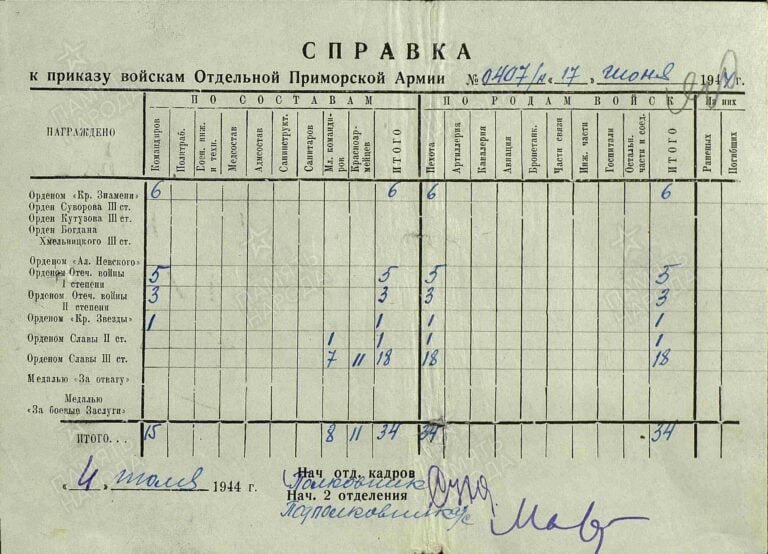 СПРАВКА
к приказу войскам Отдельной Приморской Армии № 0407/н «17» июня 1944 г.
НАГРАЖДЕНО
ПО СОСТАВАМ
ПО РОДАМ ВОЙСК
Из них
Командиров
Политраб.
Воен. инж. и техн.
Медсостав
Адмсостав
Санинструкт.
Санитаров
Мл. командиров
Красноармейцев
ИТОГО
Пехота
Артиллерия
Кавалерия
Авиация
Бронетанк.
Части связи
Инж. части
Госпитали
Остальн. части и соед.
ИТОГО
Раненых
Погибших
Орденом «Кр. Знамени» 6 6 6 6
Орден Суворова III ст.
Орден Кутузова III ст.
Орден Богдана
Хмельницкого III ст.
Орденом «Ал. Невского»
Орденом Отеч. войны
I степени 5 5 5 5
Орденом Отеч. войны
II степени 3 3 3 3
Орденом «Кр. Звезды» 1 1 1 1
Орденом Славы II ст. 1 1 1 1
Орденом Славы III ст. 7 11 18 18 18
Медалью «За отвагу»
Медалью
«За боевые Заслуги»
ИТОГО... 15 8 11 34 34 34
«4» июля 1944 г.
Нач отд. кадров
Полковник
Нач. 2 отделения
Подполковник а/с
ПАМЯТЬ НАРОДА